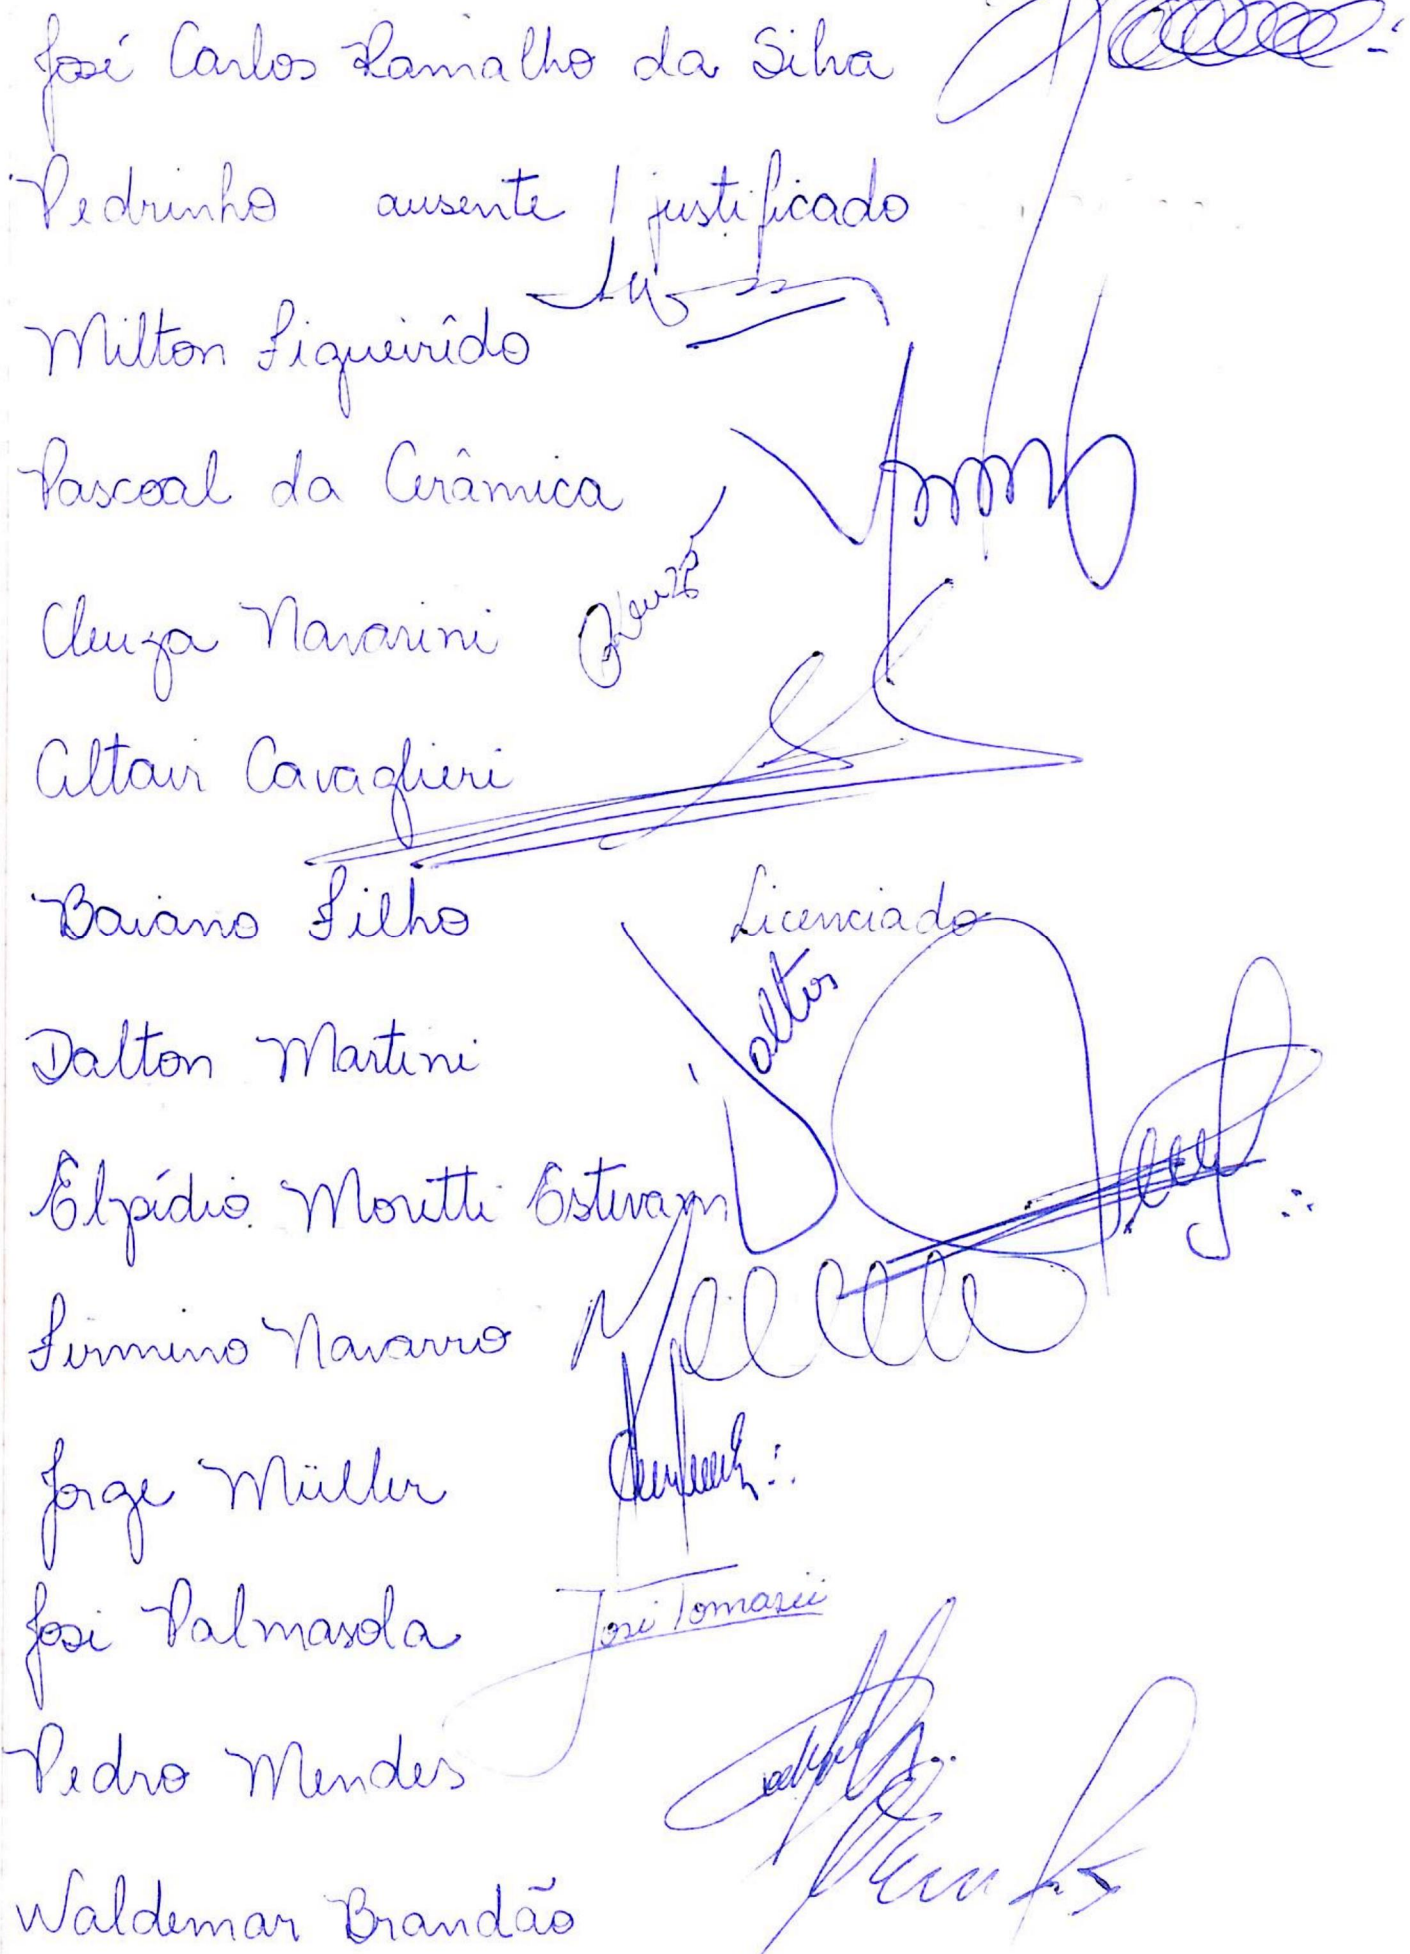 José Carlos Ramalho da Silva
Pedrinho ausente / justificado
Milton Figueirêdo
Pascoal da Cerâmica
Cleuza Navarini Cleuza
Altair Cavaglieri
Baiano Filho Licenciado
Dalton Martini Dalton
Elpídio Moretti Estevam
Firmino Navarro
Jorge Müller
José Palmasola José Tomasii
Pedro Mendes
Waldemar Brandão